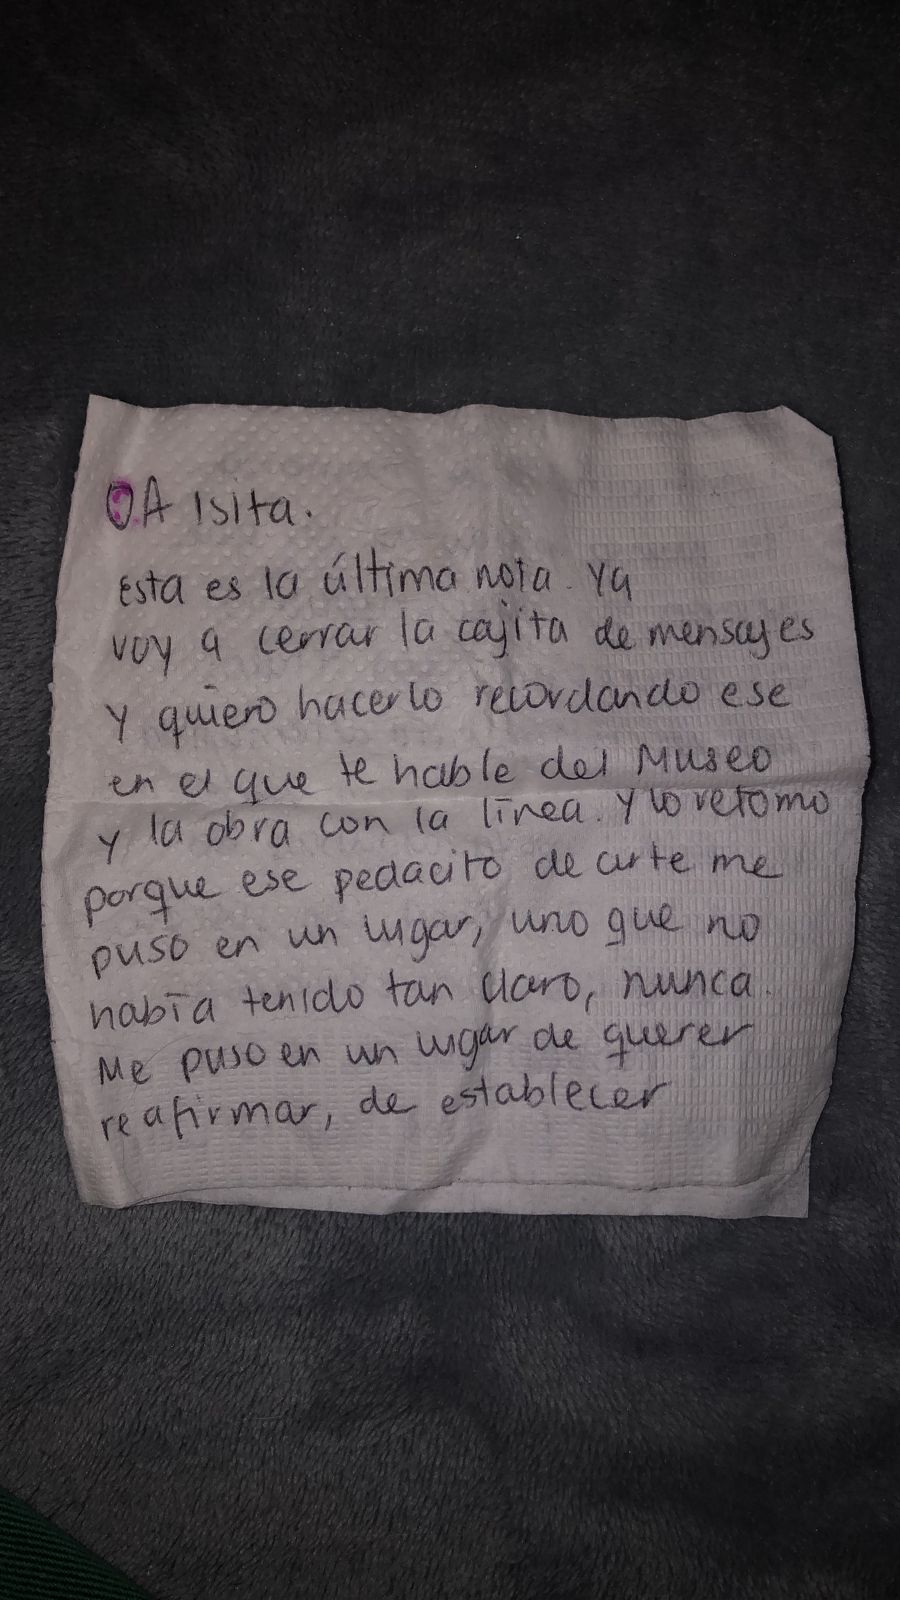 0.A Isita.
Esta es la última nota. Ya
voy a cerrar la cajita de mensajes
y quiero hacerlo recordando ese
en el que te hable del Museo
y la obra con la línea. Y lo retomo
porque ese pedacito de arte me
puso en un lugar, uno que no
había tenido tan claro, nunca.
Me puso en un lugar de querer
reafirmar, de establecer